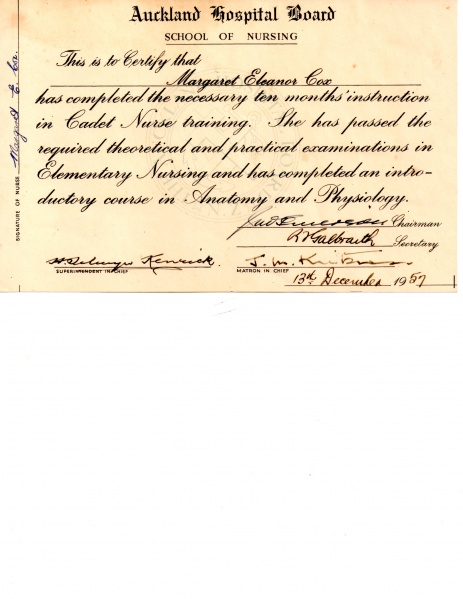 Auckland Hospital Board
SCHOOL OF NURSING
This is to Certify that
Margaret Eleanor Cox
has completed the necessary ten months' instruction
in Cadet Nurse training. She has passed the
required theoretical and practical examinations in
Elementary Nursing and has completed an intro-
ductory course in Anatomy and Physiology.
Chairman
R Galbraith Secretary
H. Selwyn Kenrick.
SUPERINTENDENT IN CHIEF
J. M.
MATRON IN CHIEF
13th December 1957
SIGNATURE OF NURSE Margaret E. Cox.